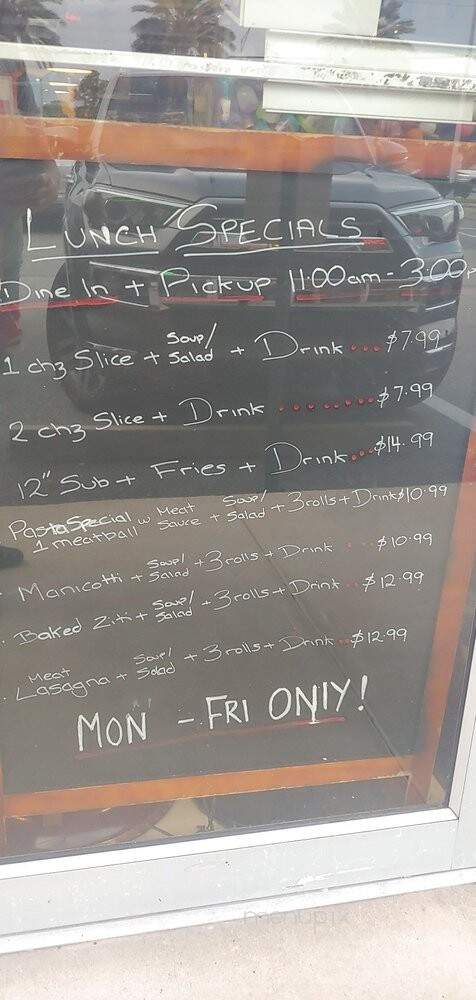 LUNCH SPECIALS
Dine In + Pickup 11:00am - 3:00
1 chz Slice + Soup/ Salad + Drink .... $7.99
2 chz Slice + Drink ........ $7.99
12" Sub + Fries + Drink... $14.99
Pasta Special w Meat Sauce + Soup/ Salad + 3 rolls + Drink $10.99
1 meatball
Manicotti + Soup/ Salad + 3 rolls + Drink .. $10.99
Baked Ziti + Soup/ Salad + 3 rolls + Drink .. $12.99
Meat Lasagna + Soup/ Salad + 3 rolls + Drink .. $12.99
MON - FRI ONlY!
menupix